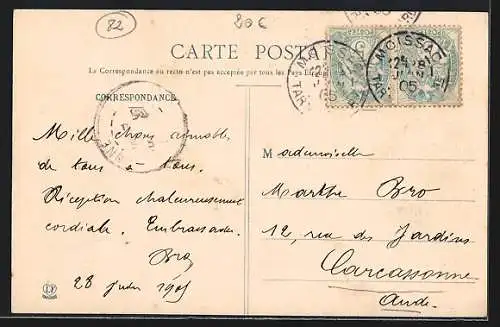 82
80c
CARTE POSTALE
La Correspondance au recto n'est pas acceptée par tous les Pays
CORRESPONDANCE
MOISSAC
05
Mille choses aimables
de tous à tous.
Réception chaleureusement
cordiale. Embrassades.
Bro
28 juin 1905
Mademoiselle
Marthe Bro
12, rue des Jardins
Carcassonne
Aude.